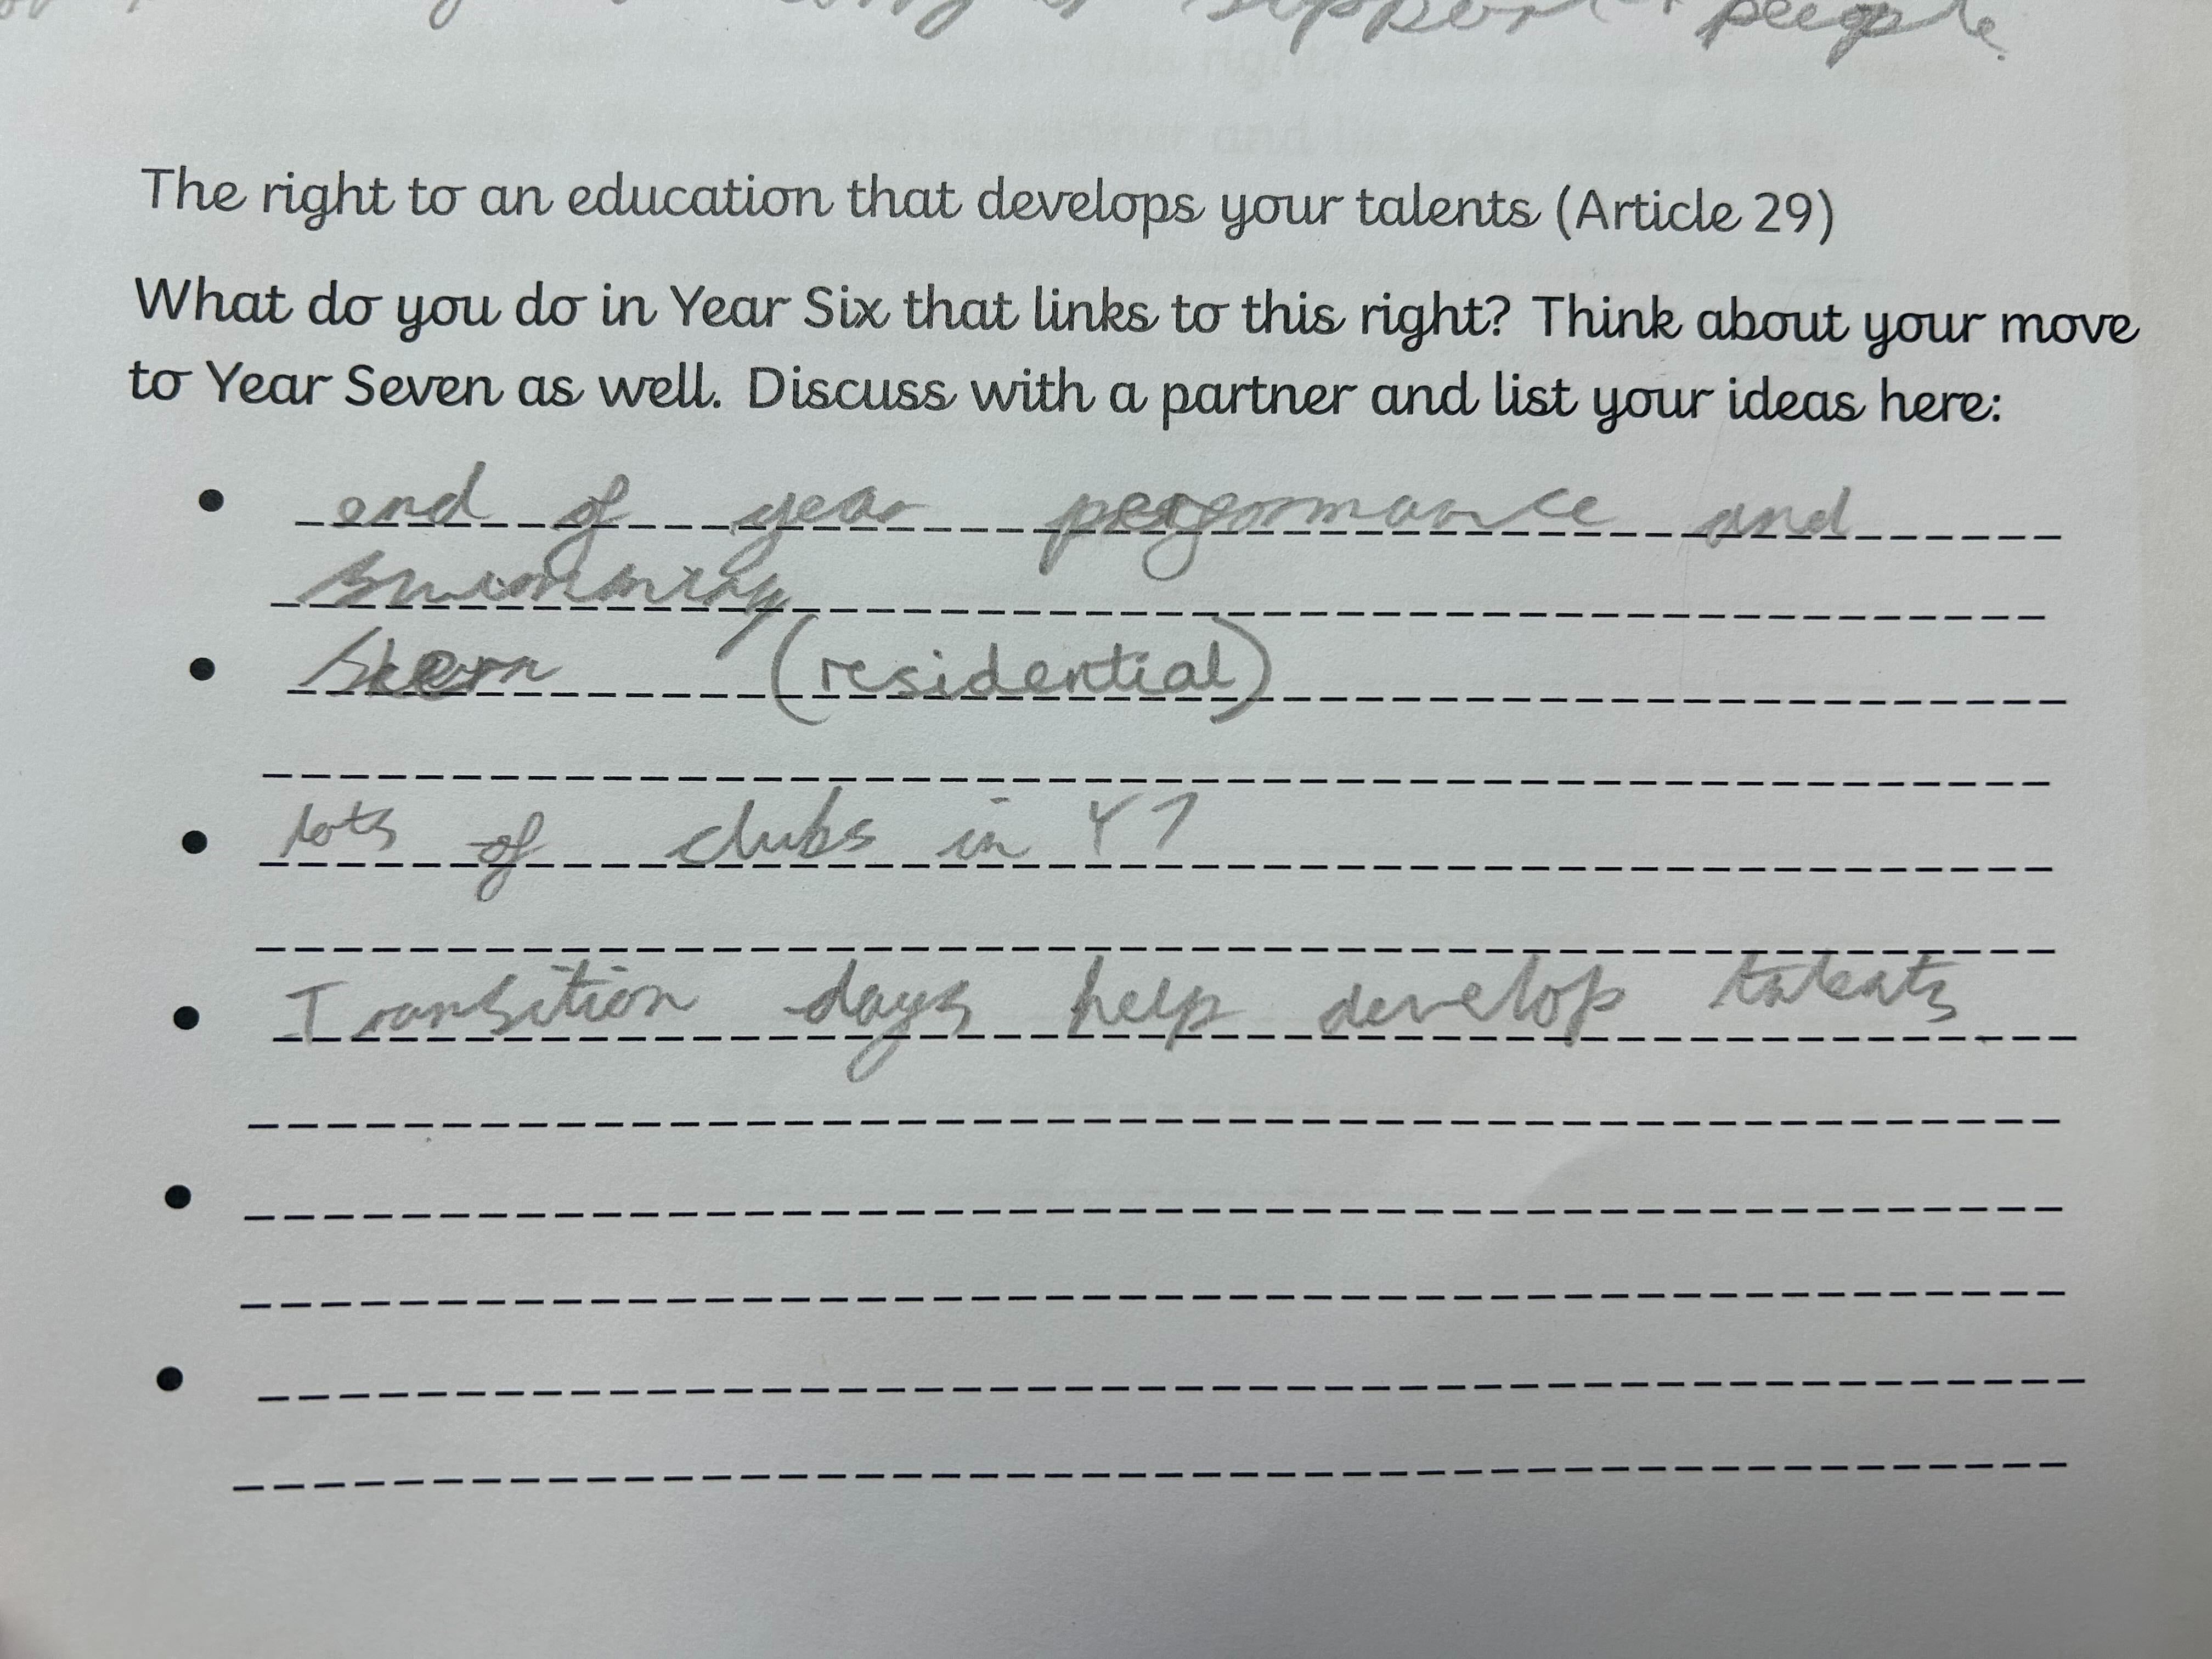 support people.
The right to an education that develops your talents (Article 29)
What do you do in Year Six that links to this right? Think about your move
to Year Seven as well. Discuss with a partner and list your ideas here:
• end of year performance and
swimming
• Skern (residential)
• lots of clubs in Y7
• Transition days help develop talents
•
•